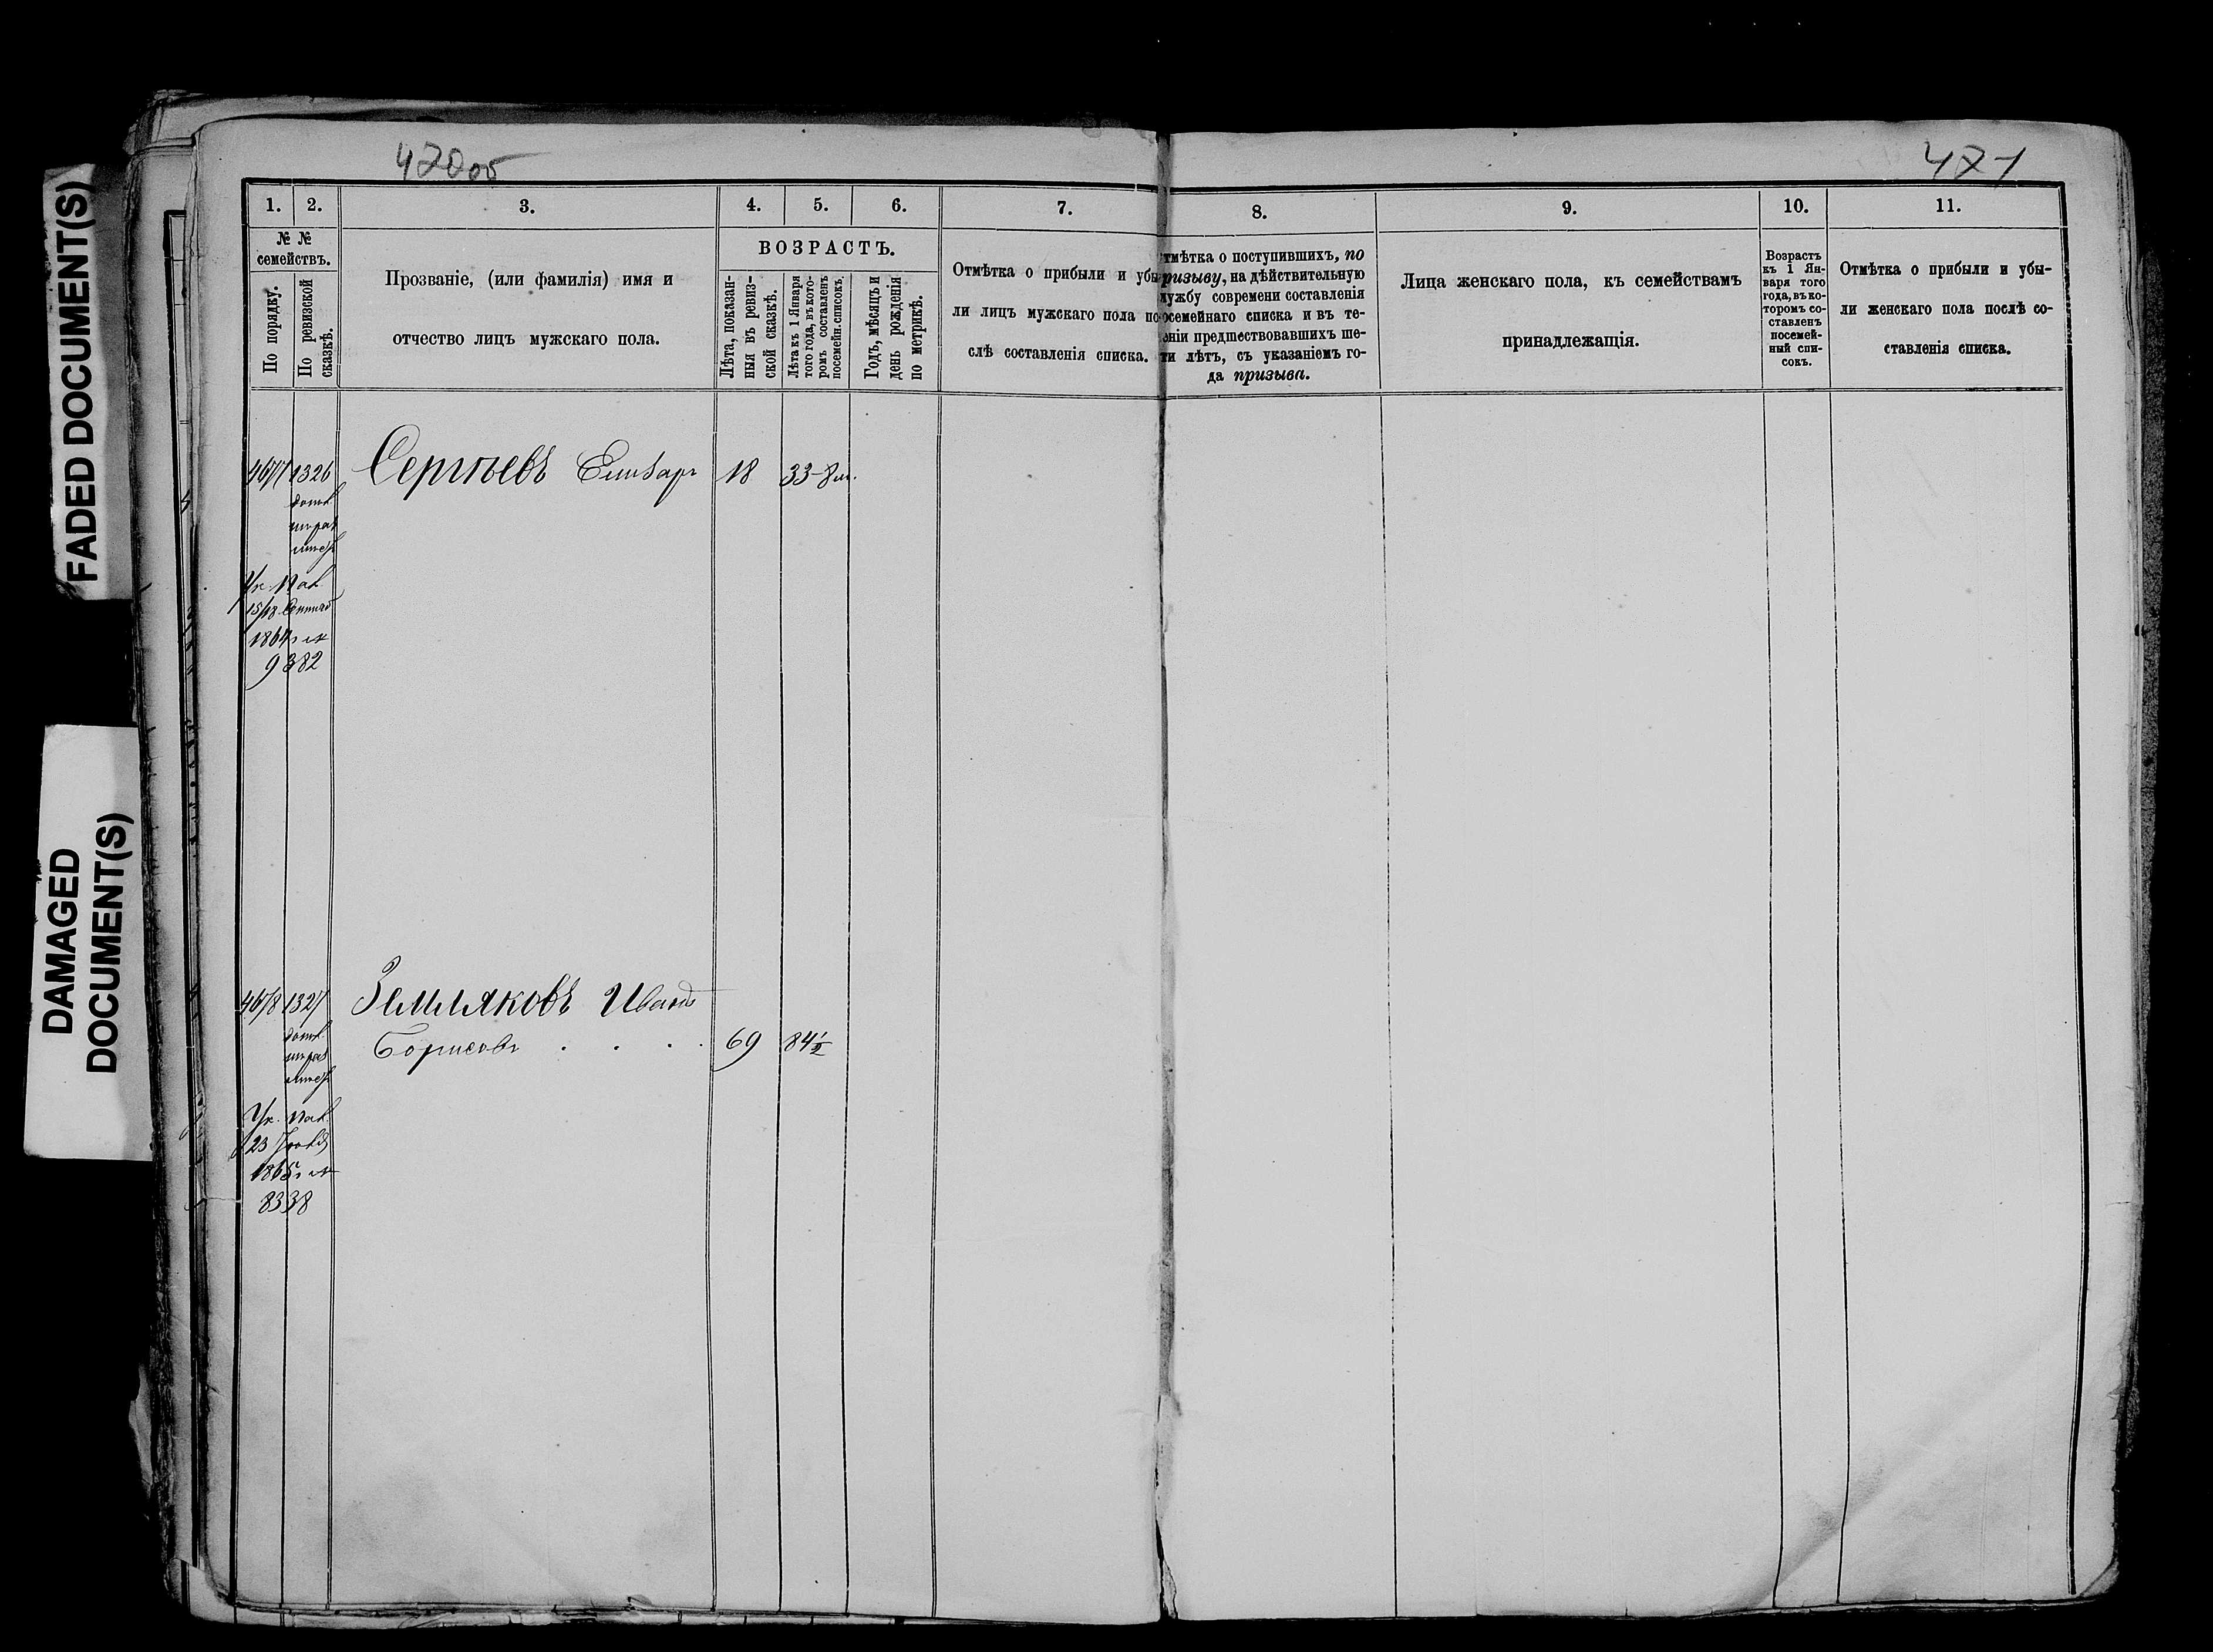 FADED DOCUMENT(S)
DAMAGED
DOCUMENT(S)
420об
421
1.
2.
3.
4.
5.
6.
7.
8.
9.
10.
11.
№ №
семействъ.
По порядку.
По ревизской
сказкѣ.
Прозваніе, (или фамилія) имя и
отчество лицъ мужскаго пола.
ВОЗРАСТЪ.
Лѣта, показан-
ныя въ ревиз-
ской сказкѣ.
Лѣта къ 1 Января
того года, въ кото-
ромъ составленъ
посемейн. списокъ
Годъ, мѣсяцъ и
день рожденія
по метрикѣ.
Отмѣтка о прибыли и убы
ли лицъ мужскаго пола по
слѣ составленія списка.
тмѣтка о поступившихъ, по
ризыву, на дѣйствительную
лужбу современи составленія
осемейнаго списка и въ те-
ніи предшествовавшихъ ше-
ти лѣтъ, съ указаніемъ го-
да призыва.
Лица женскаго пола, къ семействамъ
принадлежащія.
Возрастъ
къ 1 Ян-
варя того
года, въ ко-
торомъ со-
ставленъ
посемей-
ный спи-
сокъ.
Отмѣтка о прибыли и убы-
ли женскаго пола послѣ со-
ставленія списка.
4677 1326 Сергѣевъ 18 33-8м.
Ук. Пал.
15/18
1864г №
9382
4678 1327 Земляковъ Иванъ
Борисовъ . . . . 69 84½
Ук. Пал.
23
1865г №
8338